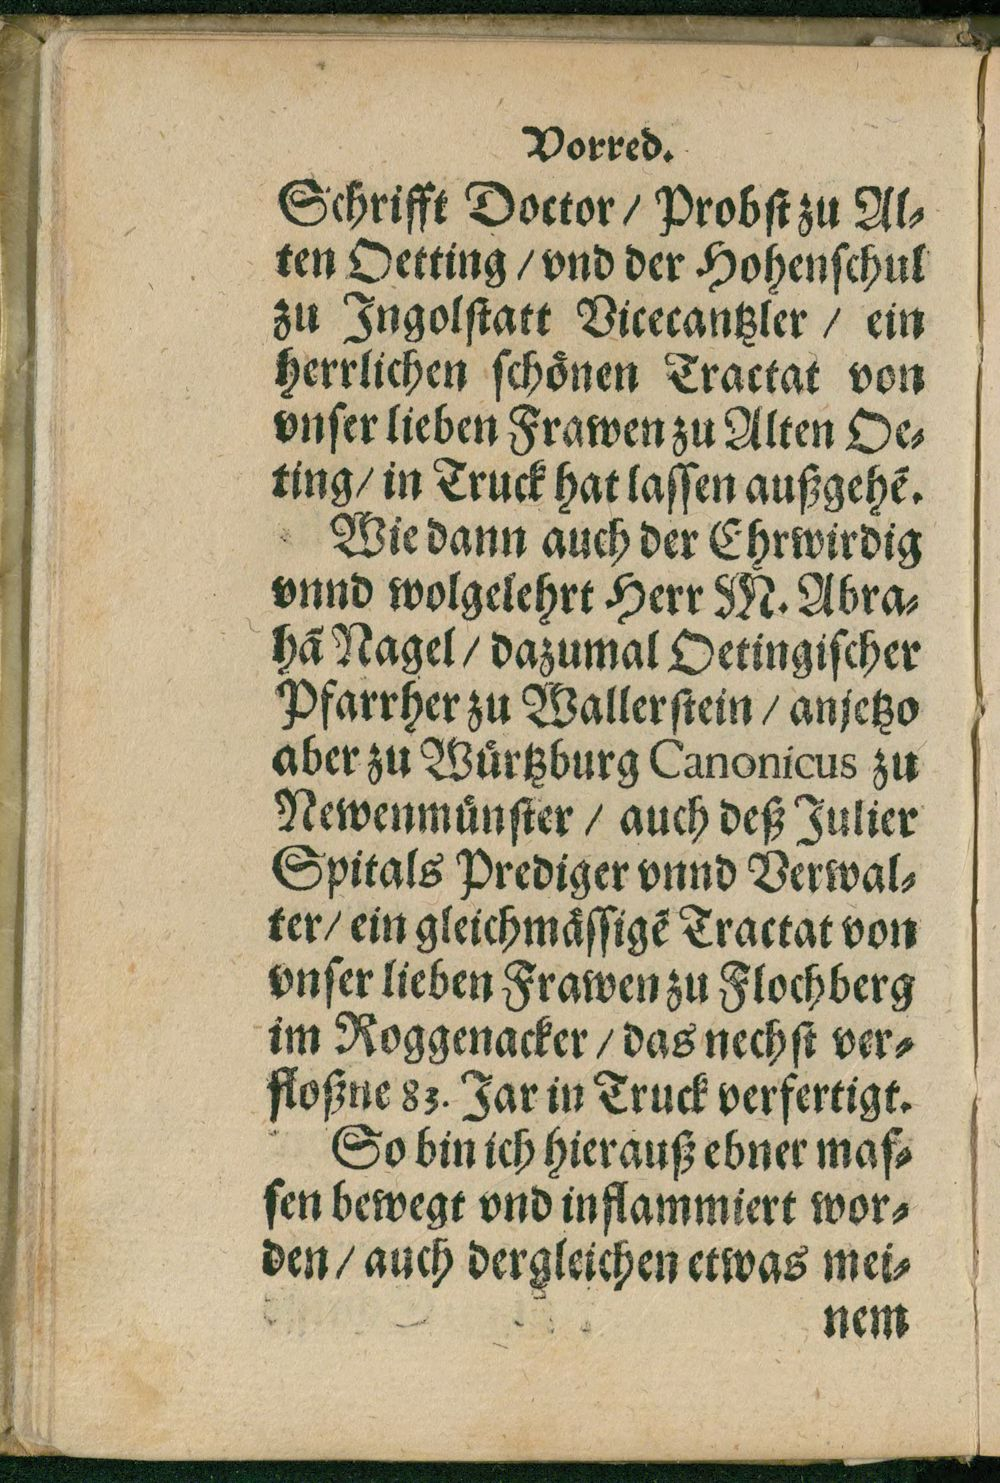 Vorred.
Schrifft Doctor / Probst zu Al⸗
ten Oetting / vnd der Hohenschul
zu Ingolstatt Vicecantzler / ein
herrlichen schönen Tractat von
vnser lieben Frawen zu Alten Oe⸗
ting / in Truck hat lassen außgehẽ.
Wie dann auch der Ehrwirdig
vnnd wolgelehrt Herr M. Abra⸗
hã Nagel / dazumal Oetingischer
Pfarrher zu Wallerstein / anjetzo
aber zu Würtzburg Canonicus zu
Newenmünster / auch deß Julier
Spitals Prediger vnnd Verwal⸗
ter / ein gleichmässigẽ Tractat von
vnser lieben Frawen zu Flochberg
im Roggenacker / das nechst ver⸗
floßne 83. Jar in Truck verfertigt.
So bin ich hierauß ebner mas⸗
sen bewegt vnd inflammiert wor⸗
den / auch dergleichen etwas mei⸗
nem